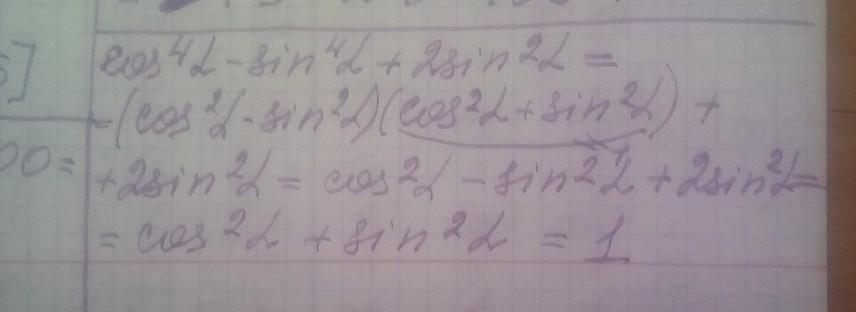 cos⁴α - sin⁴α + 2sin²α =
5]
= (cos²α - sin²α)(cos²α + sin²α) +
1
00 =
+ 2sin²α = cos²α - sin²α + 2sin²α =
= cos²α + sin²α = 1